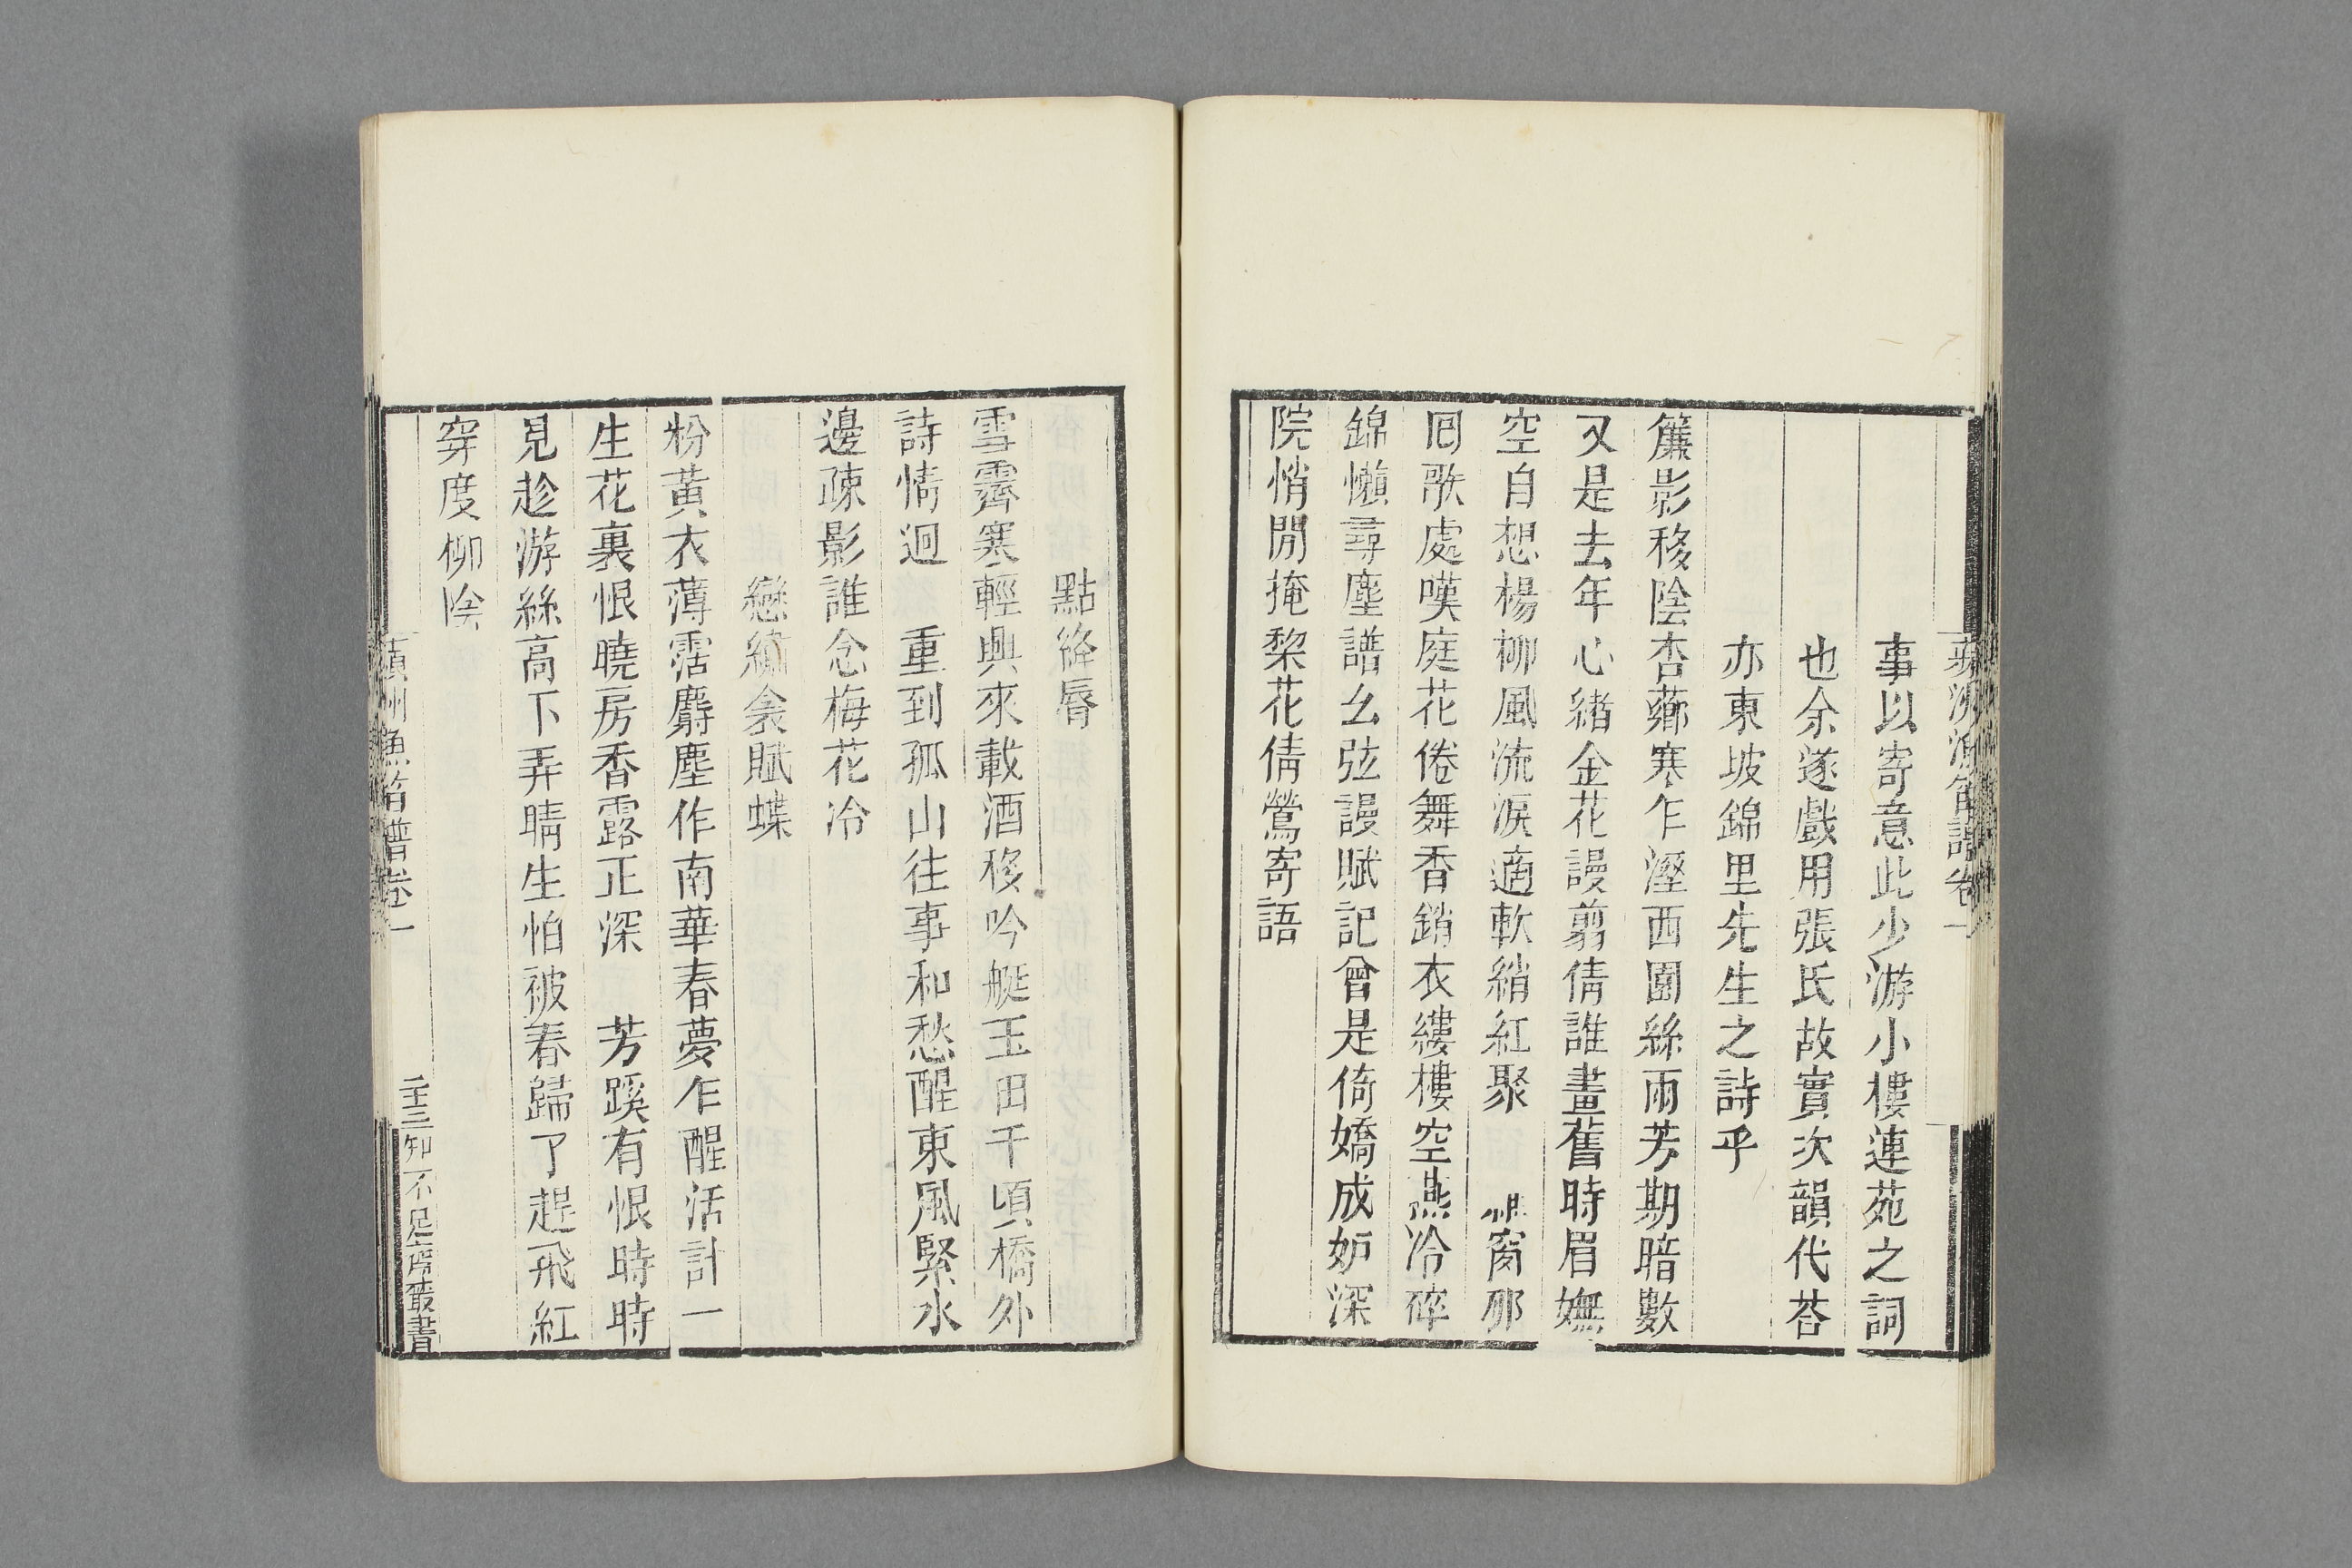 事以寄意此少游小樓連苑之詞
也余遂戲用張氏故實次韻代荅
亦東坡錦里先生之詩乎
簾影移陰杏薌寒乍溼西園絲雨芳期暗數
又是去年心緒金花謾剪倩誰畫舊時眉嫵
空自想楊柳風流淚適軟綃紅聚　窗那
囘歌處嘆庭花倦舞香銷衣縷樓空燕冷碎
錦懶尋塵譜么弦謾賦記曾是倚嬌成妒深
院悄閒掩棃花倩鶯寄語
點絳脣
雪霽寒輕興來載酒移吟艇玉田千頃橋外
詩情迥　重到孤山往事和愁醒東風緊水
邊疎影誰念梅花冷
戀繡衾賦蝶
粉黃衣薄霑麝塵作南華春夢乍醒活計一
生花裏恨曉房香露正深　芳蹊有恨時時
見趁游絲高下弄晴生怕被春歸了趕飛紅
穿度柳陰
蘋洲漁笛譜卷一
二十三知不足齋叢書